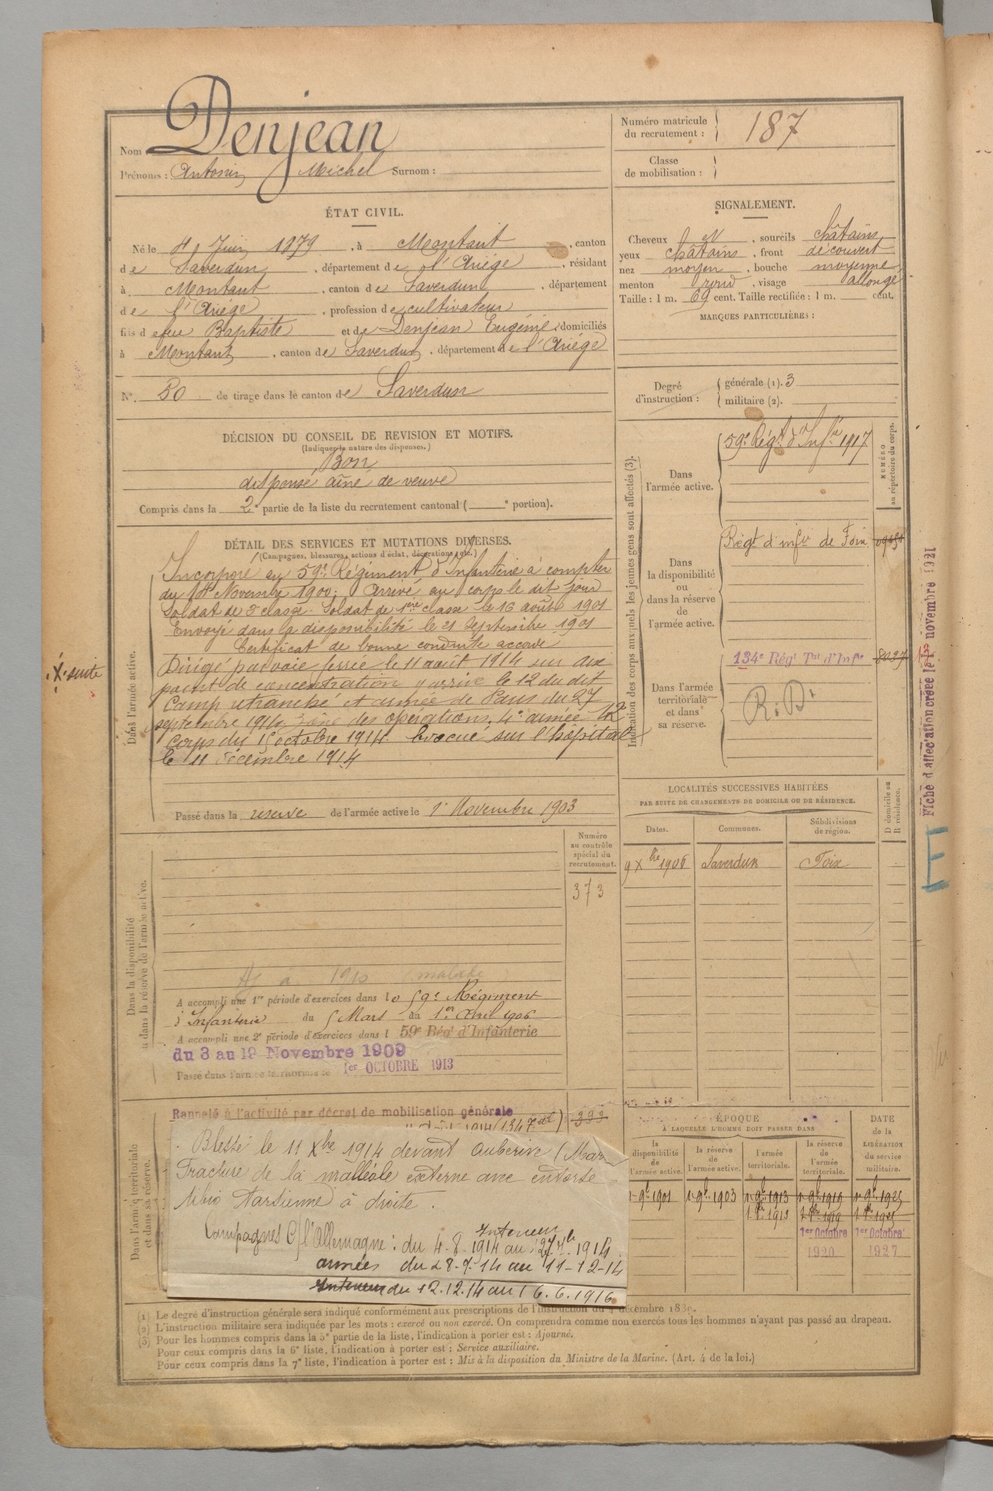 Nom Denjean
Prénoms : Antonin Michel Surnom :
ÉTAT CIVIL.
Né le 4 Juin 1879, à Montaut, canton
de Saverdun, département de l'Ariége, résidant
à Montaut, canton de Saverdun, département
de l'Ariége, profession de cultivateur
fils de feu Baptiste et de Denjean Eugénie, domiciliés
à Montaut, canton de Saverdun, département de l'Ariége
N° 50 de tirage dans le canton de Saverdun
DÉCISION DU CONSEIL DE REVISION ET MOTIFS.
(Indiquer la nature des dispenses.)
Bon
dispensé aîné de veuve
Compris dans la 2e partie de la liste du recrutement cantonal ( e portion).
DÉTAIL DES SERVICES ET MUTATIONS DIVERSES.
(Campagnes, blessures, actions d'éclat, décorations, etc.)
Dans l'armée active.
Incorporé au 59e Régiment d'Infanterie à compter
du Novembre 1900. Arrivé au corps le dit jour
Soldat de 2e classe. Soldat de 1ère classe le 16 août 1901
Envoyé dans la disponibilité le 21 Septembre 1901
Certificat de bonne conduite accordé
X suite
Dirigé par voie ferrée le 11 août 1914 sur
point de concentration y arrivé le 12 du dit
Camp retranché et armée de Paris du 27
septembre 1914 zone des opérations, 4e armée 12e
Corps du 1 octobre 1914. Evacué sur l'hôpital
le 11 décembre 1914
Passé dans la réserve de l'armée active le 1er Novembre 1903
Numéro
au contrôle
spécial du
recrutement.
373
Dans la disponibilité
ou dans la réserve de l'armée active.
1910 malade
A accompli une 1re période d'exercices dans le 59e Régiment
d'Infanterie du 5 Mars au 1er Avril 1906
A accompli une 2e période d'exercices dans l 59e Régt d'Infanterie
du 3 au 19 Novembre 1909
Passé dans l'armée territoriale le 1er OCTOBRE 1913
Dans l'armée territoriale
et dans sa réserve.
Rappelé à l'activité par décret de mobilisation générale
Blessé le 11 Xbre 1914 devant Auberive (Mar
Fracture de la malléole externe avec entorse
tibio tarsienne à droite.
Campagnes C/l'Allemagne : Interieur du 4.8.1914 au 27 7bre 1914
armées du 28.9.14 au 11-12-14
Interieur du 12.12.14 au 16.6.1916
Numéro matricule
du recrutement : 187
Classe
de mobilisation :
SIGNALEMENT.
Cheveux N, sourcils châtains,
yeux châtains, front découvert
nez moyen, bouche moyenne,
menton rond, visage allongé
Taille : 1 m. 69 cent. Taille rectifiée : 1 m. cent.
MARQUES PARTICULIÈRES :
Degré
d'instruction :
générale (1). 3
militaire (2).
Indication des corps auxquels les jeunes gens sont affectés (3).
NUMÉRO
au répertoire du corps.
Dans
l'armée active.
59e Régt d'Infie 1917
Dans
la disponibilité
ou
dans la réserve
de
l'armée active.
Régt d'infie de Foix
Dans l'armée
territoriale
et dans
sa réserve.
134e Régt Tal d'Infie
Fiche d'affectation créée le 1er novembre 1921
LOCALITÉS SUCCESSIVES HABITÉES
PAR SUITE DE CHANGEMENTS DE DOMICILE OU DE RÉSIDENCE.
Dates. Communes. Subdivisions de région. D domicile ou R résidence.
9 Xbre 1906 Saverdun Foix
ÉPOQUE
A LAQUELLE L'HOMME DOIT PASSER DANS
la disponibilité de l'armée active. la réserve de l'armée active. l'armée territoriale. la réserve de l'armée territoriale.
DATE de la LIBÉRATION du service militaire.
1 9bre 1901 1 9bre 1903 1 9bre 1913 1 9bre 1919 1 9bre 1925
1er Octobre 1920 1er Octobre 1927
(1) Le degré d'instruction générale sera indiqué conformément aux prescriptions de l'instruction du 4 décembre 1889.
(2) L'instruction militaire sera indiquée par les mots : exercé ou non exercé. On comprendra comme non exercés tous les hommes n'ayant pas passé au drapeau.
(3) Pour les hommes compris dans la 5e partie de la liste, l'indication à porter est : Ajourné.
Pour ceux compris dans la 6e liste, l'indication à porter est : Service auxiliaire.
Pour ceux compris dans la 7e liste, l'indication à porter est : Mis à la disposition du Ministre de la Marine. (Art. 4 de la loi.)